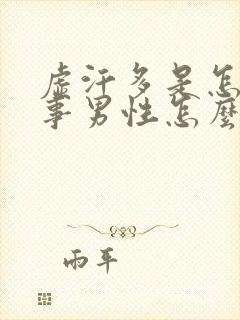 虚汗多是怎
事男性怎麼
雨平